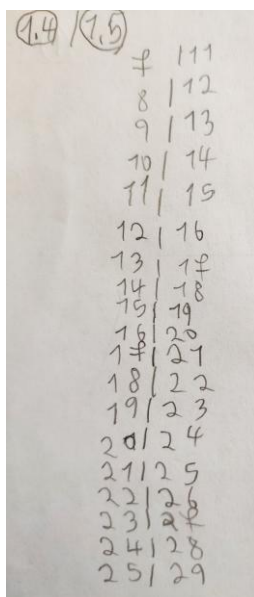 1.4 / 1.5
7 / 11
8 / 12
9 / 13
10 / 14
11 / 15
12 / 16
13 / 17
14 / 18
15 / 19
16 / 20
17 / 21
18 / 22
19 / 23
20 / 24
21 / 25
22 / 26
23 / 27
24 / 28
25 / 29